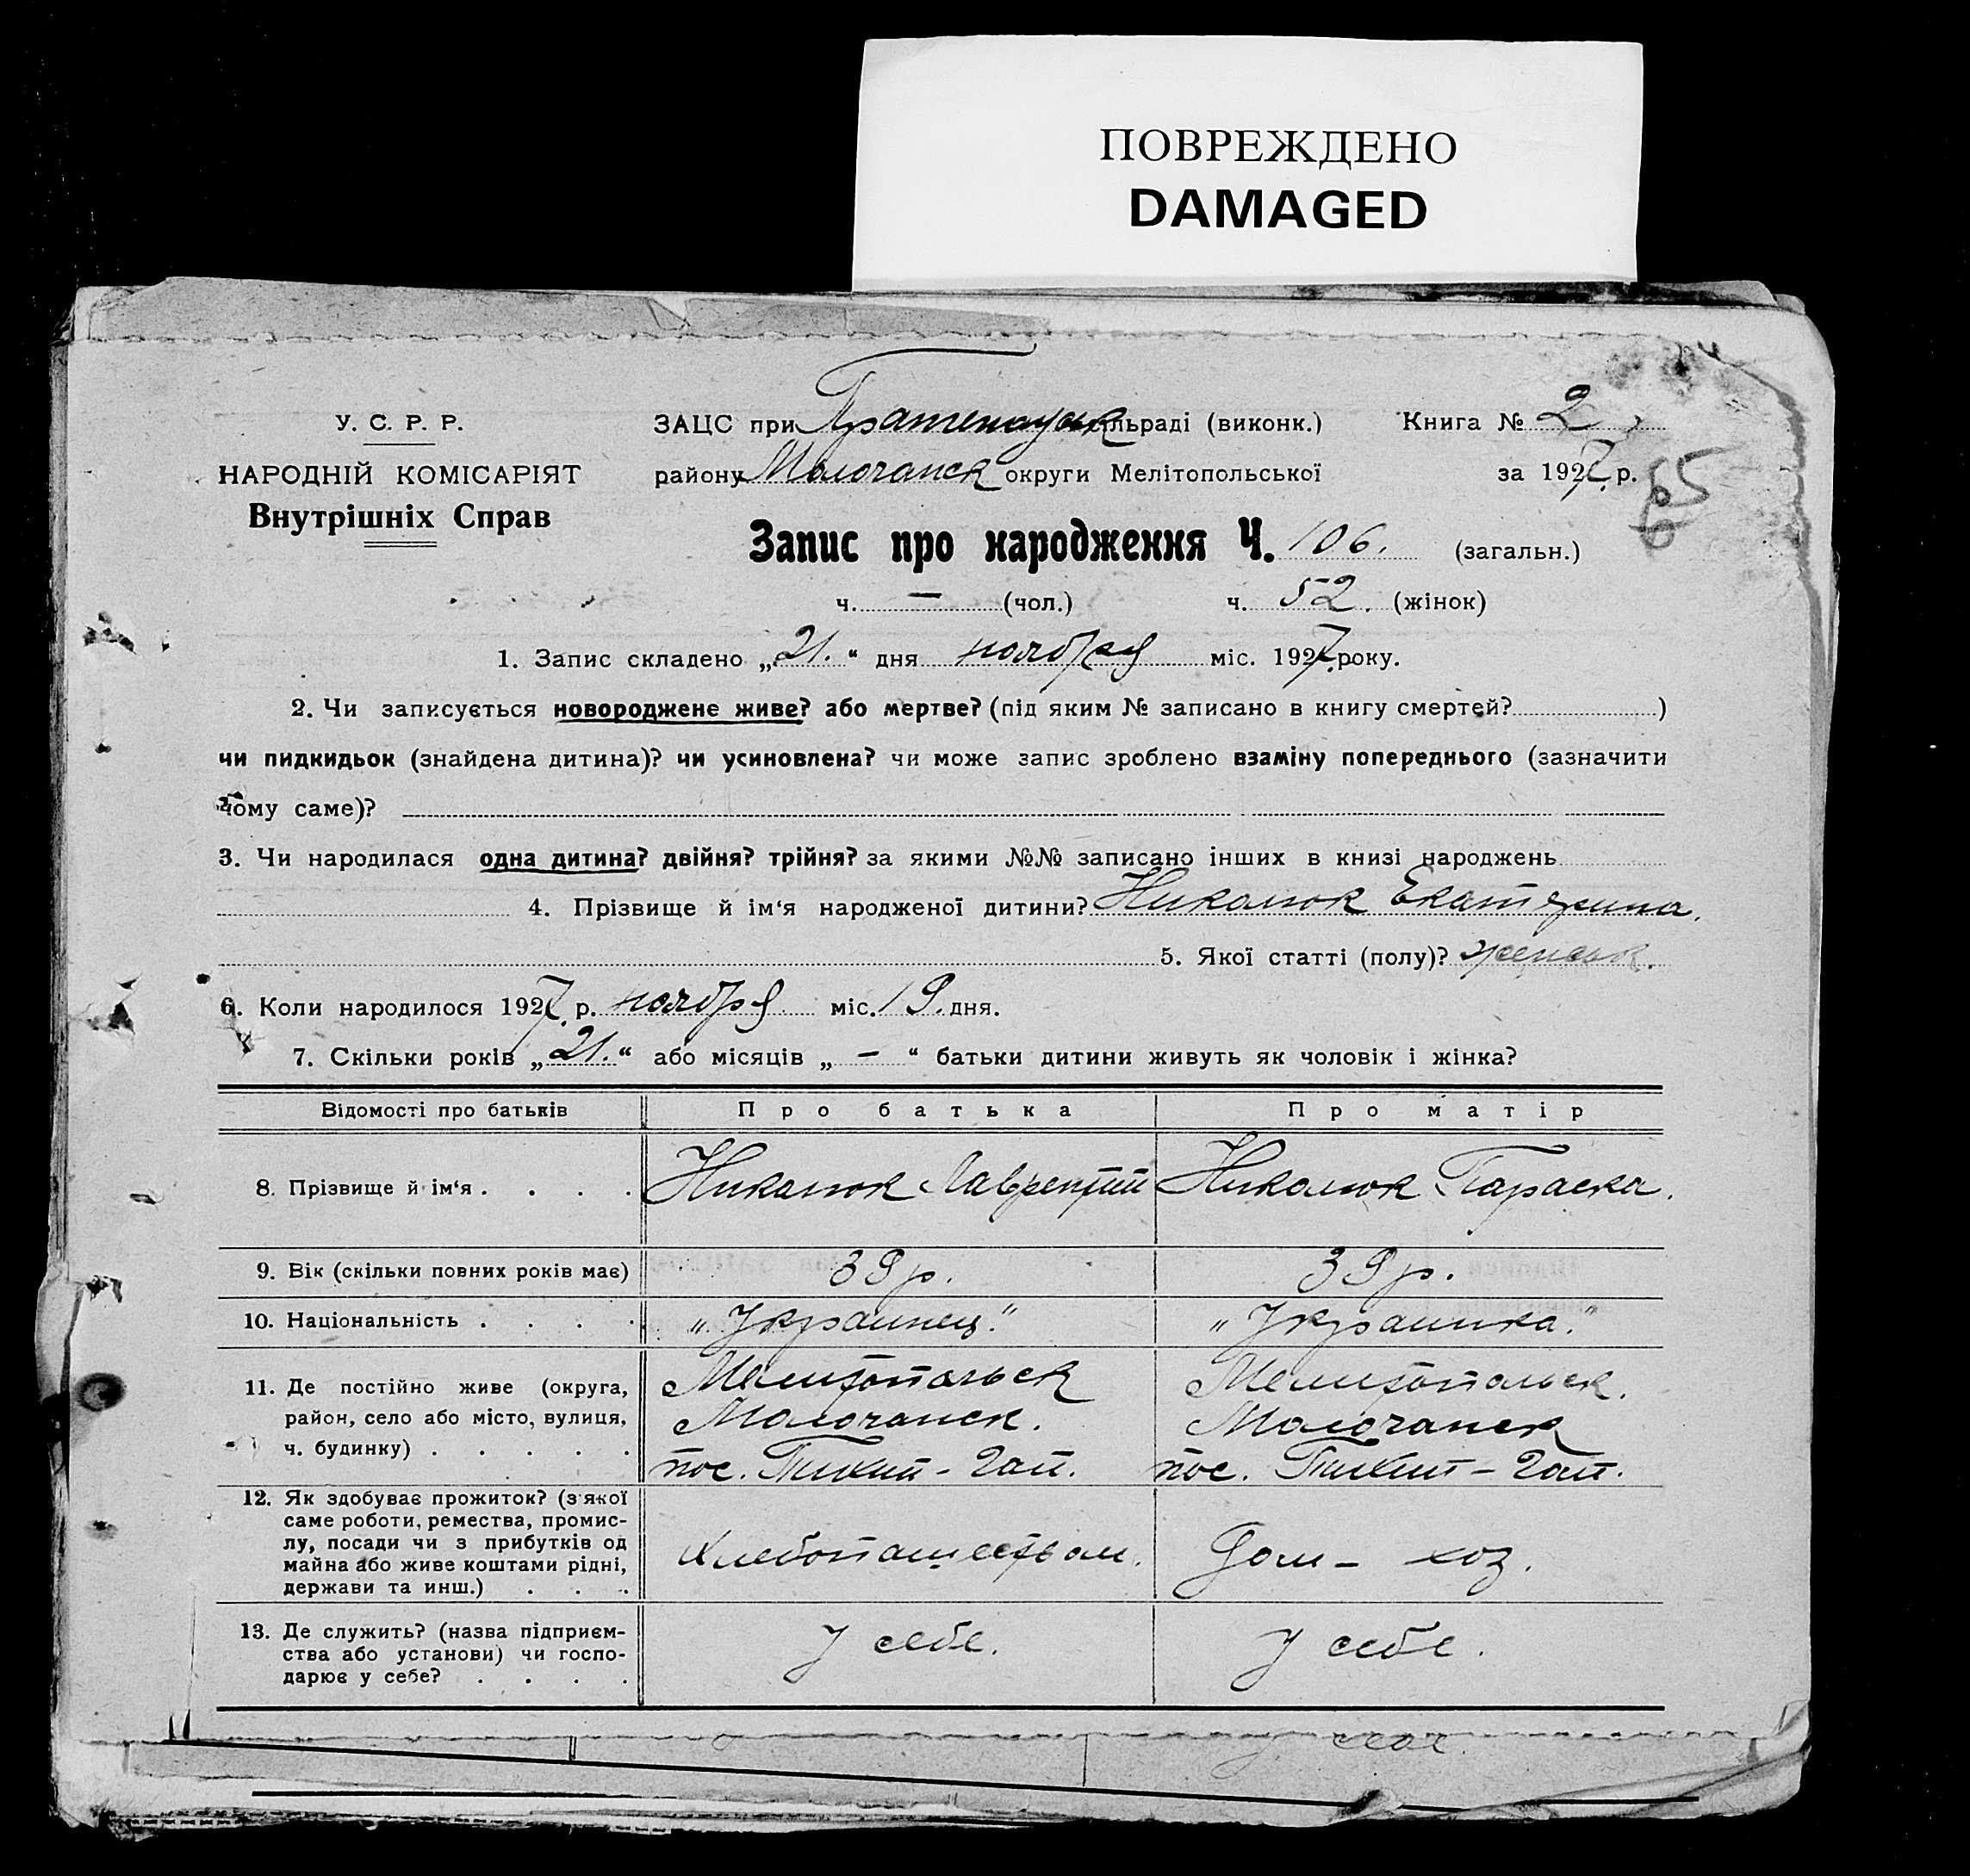 ПОВРЕЖДЕНО
DAMAGED
У. С. Р. Р.
НАРОДНІЙ КОМІСАРІЯТ
Внутрішніх Справ
ЗАЦС при сільраді (виконк.) Книга № 2
району Молочанск округи Мелітопольської за 1927 р.
65
Запис про народження Ч. 106. (загальн.)
ч. — (чол.) ч. 52. (жінок)
1. Запис складено „21.“ дня ноября міс. 1927 року.
2. Чи записується новороджене живе? або мертве? (під яким № записано в книгу смертей? )
чи пидкидьок (знайдена дитина)? чи усиновлена? чи може запис зроблено взаміну попереднього (зазначити
чому саме)?
3. Чи народилася одна дитина? двійня? трійня? за якими №№ записано інших в книзі народжень
4. Прізвище й ім‘я народженої дитини? Николюк Екатерина.
5. Якої статті (полу)? женск.
6. Коли народилося 1927 р. ноября міс. 19. дня.
7. Скільки років „21.“ або місяців „—“ батьки дитини живуть як чоловік і жінка?
Відомості про батьків Про батька Про матір
8. Прізвище й ім‘я . . . . Николюк Лаврентий Николюк Параска.
9. Вік (скільки повних років має) 39 р. 39 р.
10. Національність . . . . „Украинец.“ „Украинка.“
11. Де постійно живе (округа,
район, село або місто, вулиця,
ч. будинку) . . . . .
Мелитопольск
Молочанск.
пос. Тихий-Гай.
Мелитопольск.
Молочанск
пос. Тихий-Гай.
12. Як здобуває прожиток? (з якої
саме роботи, ремества, промис-
лу, посади чи з прибутків од
майна або живе коштами рідні,
держави та инш.) . . .
Хлебопашеством.
Дом- хоз.
13. Де служить? (назва підприєм-
ства або установи) чи госпо-
дарює у себе? . . . .
У себе.
У себе.